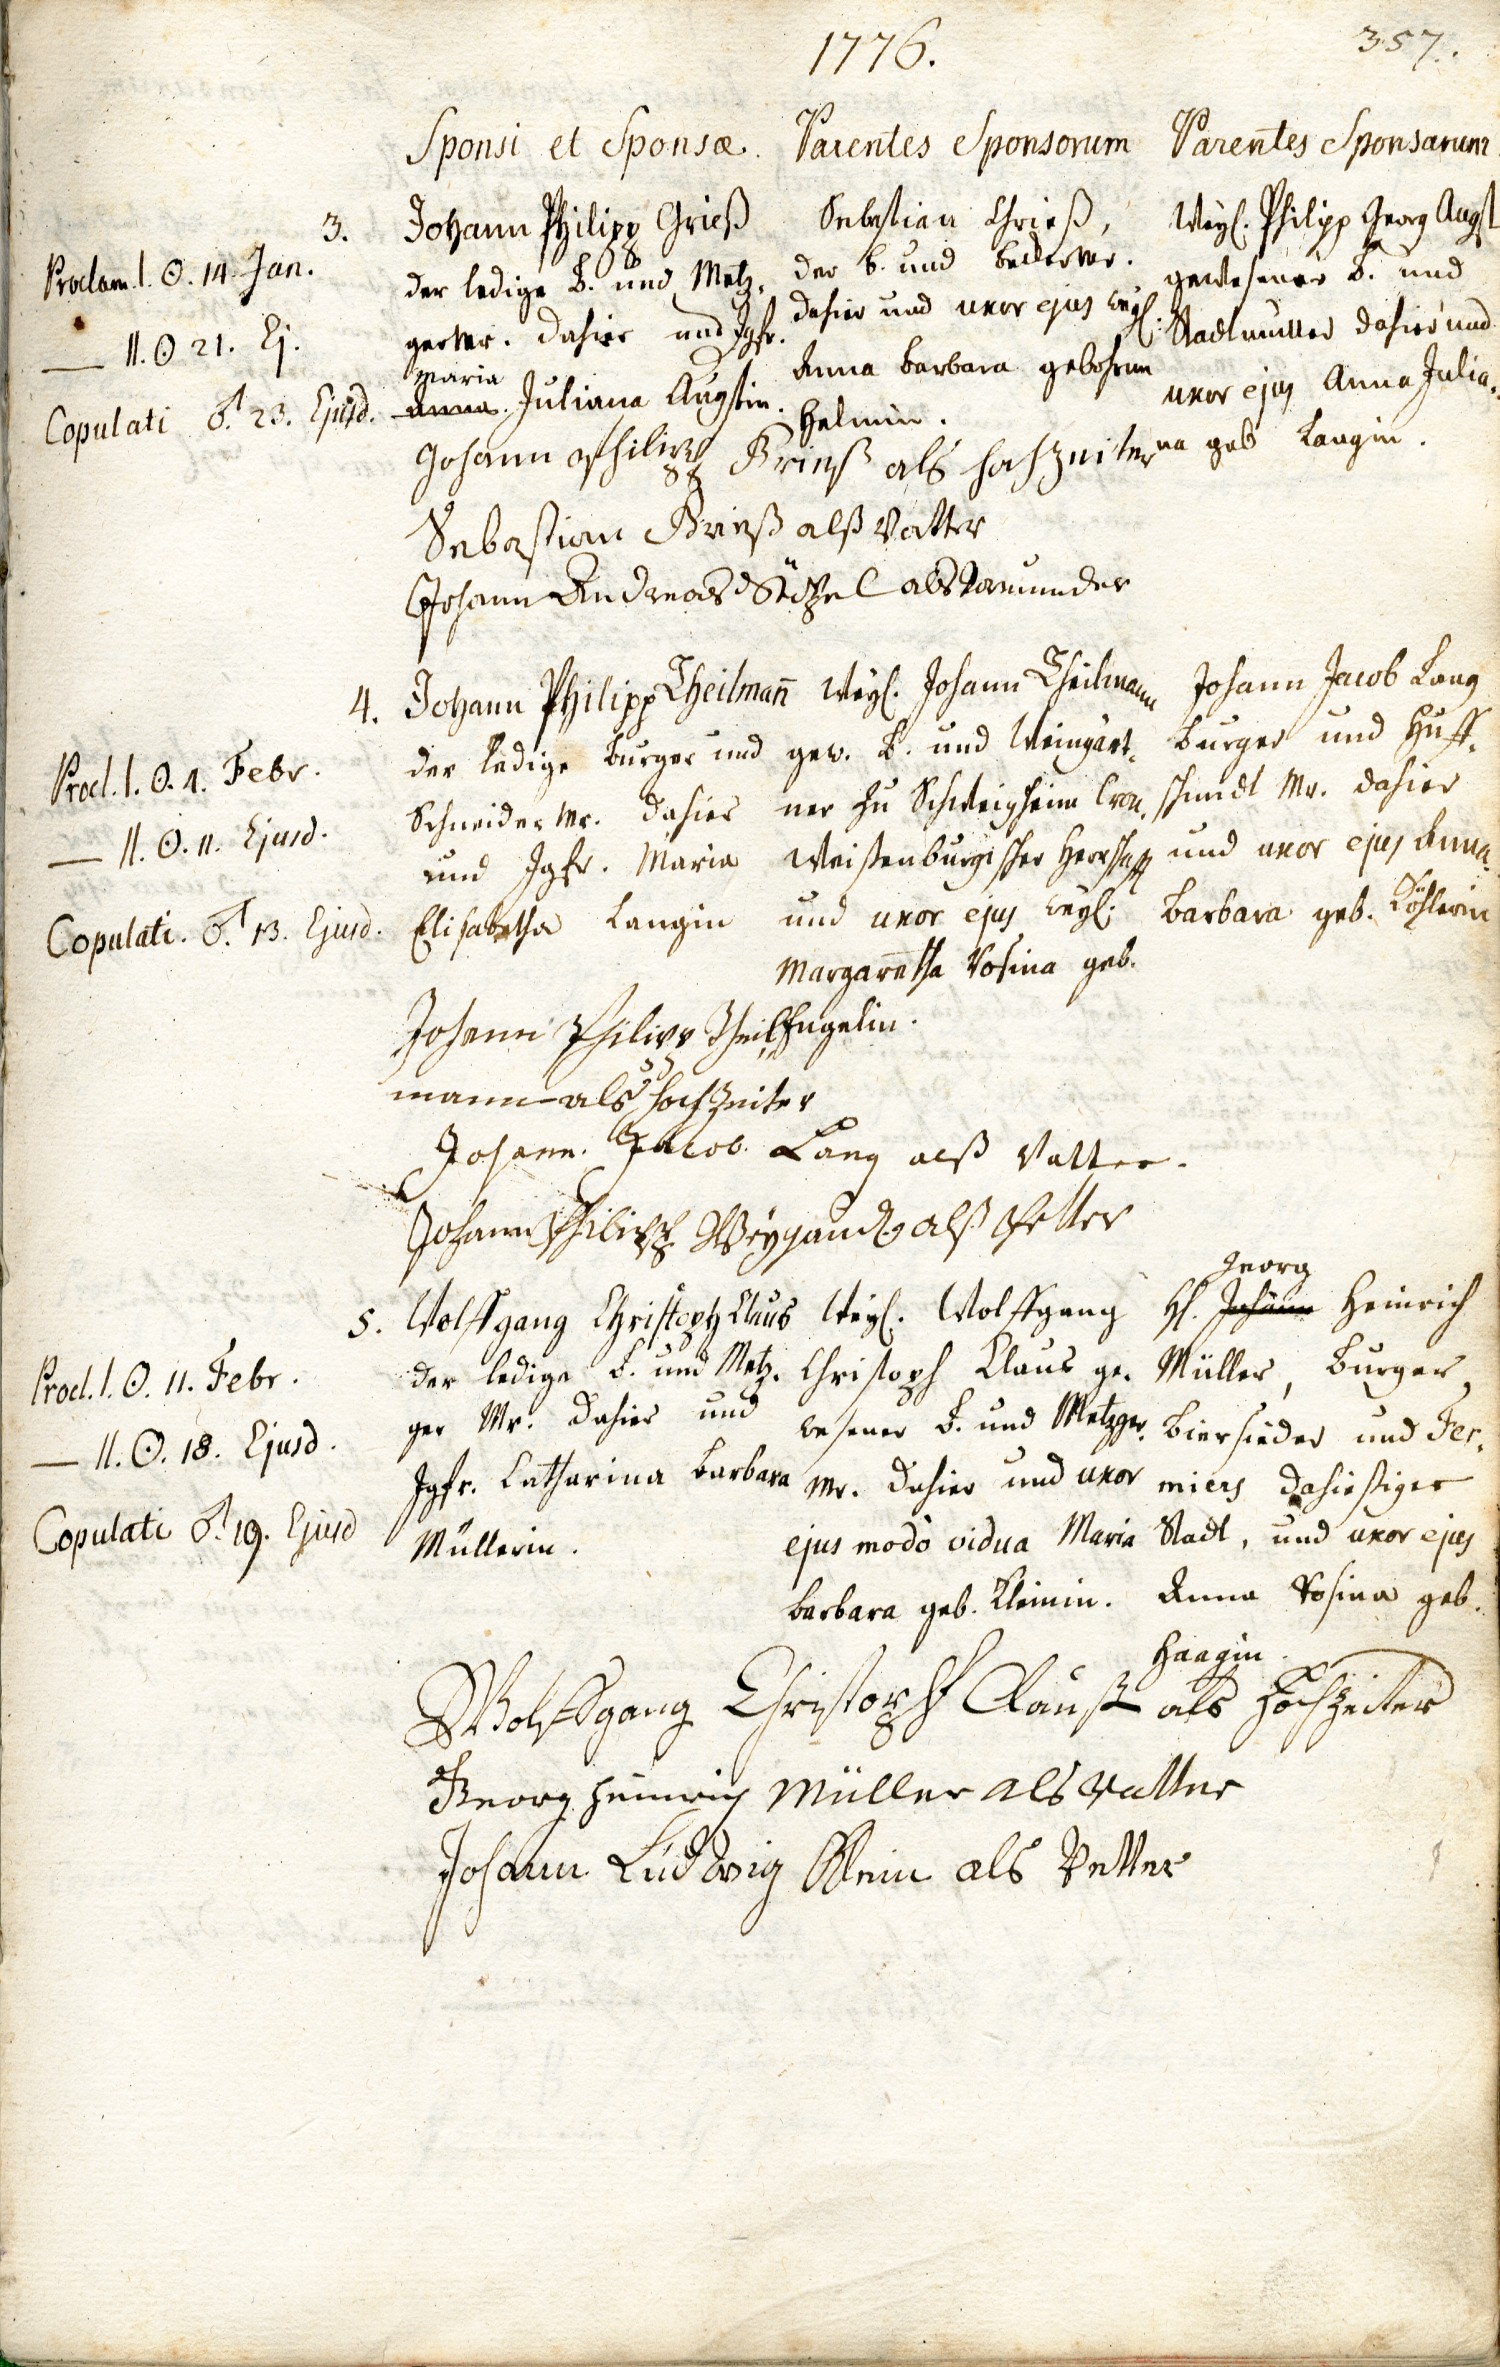 1776.
357.
Sponsi et Sponsæ.
Parentes Sponsorum
Parentes Sponsarum
3.
Proclam. I. ☉. 14. Jan.
— II. ☉ 21. Ej.
Copulati ♂. 23. Ejusd.
Johann Philipp Grieß
der ledige B. und Metz-
ger Mr. dahier und Jgfr.
Maria
Anna Juliana Augstin.
Sebastian Grieß,
der b. und Becker Mr.
dahier und uxor ejus weyl.
Anna Barbara gebohrne
Helmin.
Weyl. Philipp Georg Augst
gewesener B. und
Stadtmüller dahier und
uxor ejus Anna Julia-
na geb Langin.
Johann Philipp Grieß als hochzeiter
Sebastian Grieß alß Vatter
Johann Andreas als Vormunder
4.
Procl. I. ☉. 4. Febr.
— II. ☉. 11. Ejusd.
Copulati. ♂. 13. Ejusd.
Johann Philipp Theilmañ
der ledige Burger und
Schneider Mr. dahier
und Jgfr. Maria
Elisabetha Langin
Weyl. Johann Theilmann
gew. B. und Weingärt-
ner zu Schweigheim Cron-
Weissenburgischer Herrschafft
und uxor ejus weyl.
Margaretha Rosina geb.
Engelin.
Johann Jacob Lang
Burger und Huff-
schmidt Mr. dahier
und uxor ejus Anna
Barbara geb. Löhlerin
Johann Philipp Theil-
mann als hochzeiter
Johann Jacob Lang alß Vatter.
Johann Philipp Weygandt alß Petter
5.
Procl. I. ☉. 11. Febr.
— II. ☉. 18. Ejusd.
Copulati ♂. 19. Ejusd
Wolffgang Christoph Claus
der ledige B. und Metz-
ger Mr. dahier und
Jgfr. Catharina Barbara
Müllerin.
Weyl. Wolffgang
Christoph Claus ge-
wesener B. und Metzger
Mr. dahier und uxor
ejus modo vidua Maria
Barbara geb. Kleinin.
Georg
H. Johann Heinrich
Müller, Burger,
Biersieder und Fer-
miers dahiesiger
Stadt, und uxor ejus
Anna Rosina geb.
Haagin.
Wolffgang Christoph Clauß als Hochzeiter
Georg Heinrich Müller als Vatter
Johann Ludwig Klein als Vetter